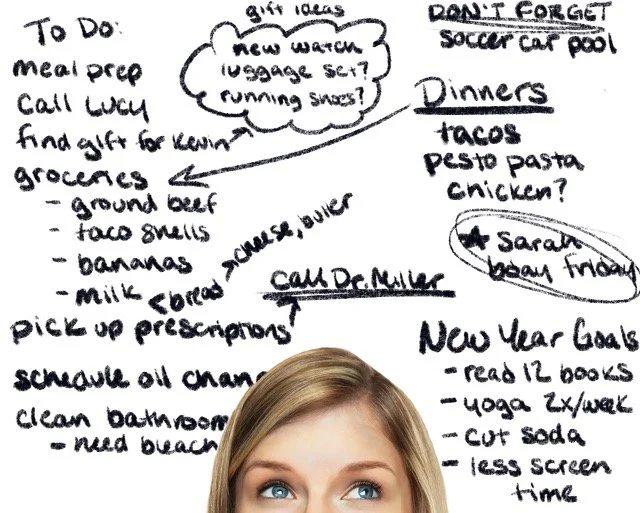 To Do:
meal prep
call Lucy
find gift for Kevin
groceries
- ground beef
- taco shells
- bananas
- milk
bread
cheese, butter
pick up prescriptions
schedule oil chan
clean bathroom
- need bleach
gift ideas
new watch
luggage set?
running shoes?
Call Dr. Miller
DON'T FORGET
soccer car pool
Dinners
tacos
pesto pasta
chicken?
★ Sarah
bday friday
New Year Goals
- read 12 books
- yoga 2x/week
- cut soda
- less screen
time